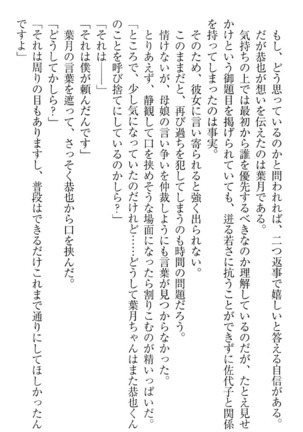 もし、どう思っているのかと問われれば、二つ返事で嬉しいと答える自信がある。
だが恭也が想いを伝えたのは葉月である。
気持ちの上では最初から誰を優先するべきなのか理解しているのだが、たとえ見せ
かけという御題目を掲げられていても、迸る若さに抗うことができずに佐代子と関係
を持ってしまったのは事実。
そのため、彼女に言い寄られると強く出られない。
このままだと、再び過ちを犯してしまうのも時間の問題だろう。
情けないが、母娘の言い争いを仲裁しようにも言葉が見つからなかった。
とりあえず、静観して口を挟めそうな場面になったら割りこむのが精いっぱいだ。
「ところで、少し気になっていたのだけれど……どうして葉月ちゃんはまた恭也くん
のことを呼び捨てにしているのかしら？」
「それは――」
「それは僕が頼んだんです」
葉月の言葉を遮って、さっそく恭也から口を挟んだ。
「どうしてかしら？」
「それは周りの目もありますし、普段はできるだけこれまで通りにしてほしかったん
ですよ」